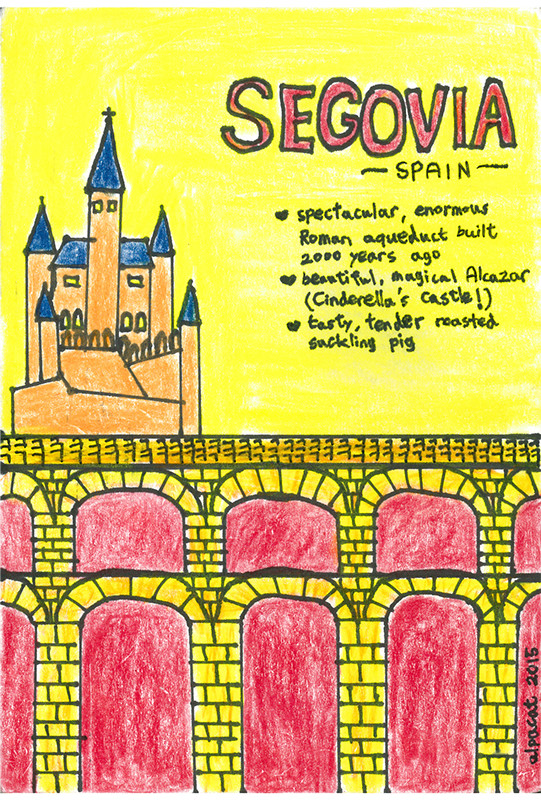 SEGOVIA
— SPAIN —
♥ spectacular, enormous
Roman aqueduct built
2000 years ago
♥ beautiful, magical Alcazar
(Cinderella's castle!)
♥ tasty, tender roasted
suckling pig
alpacat 2015